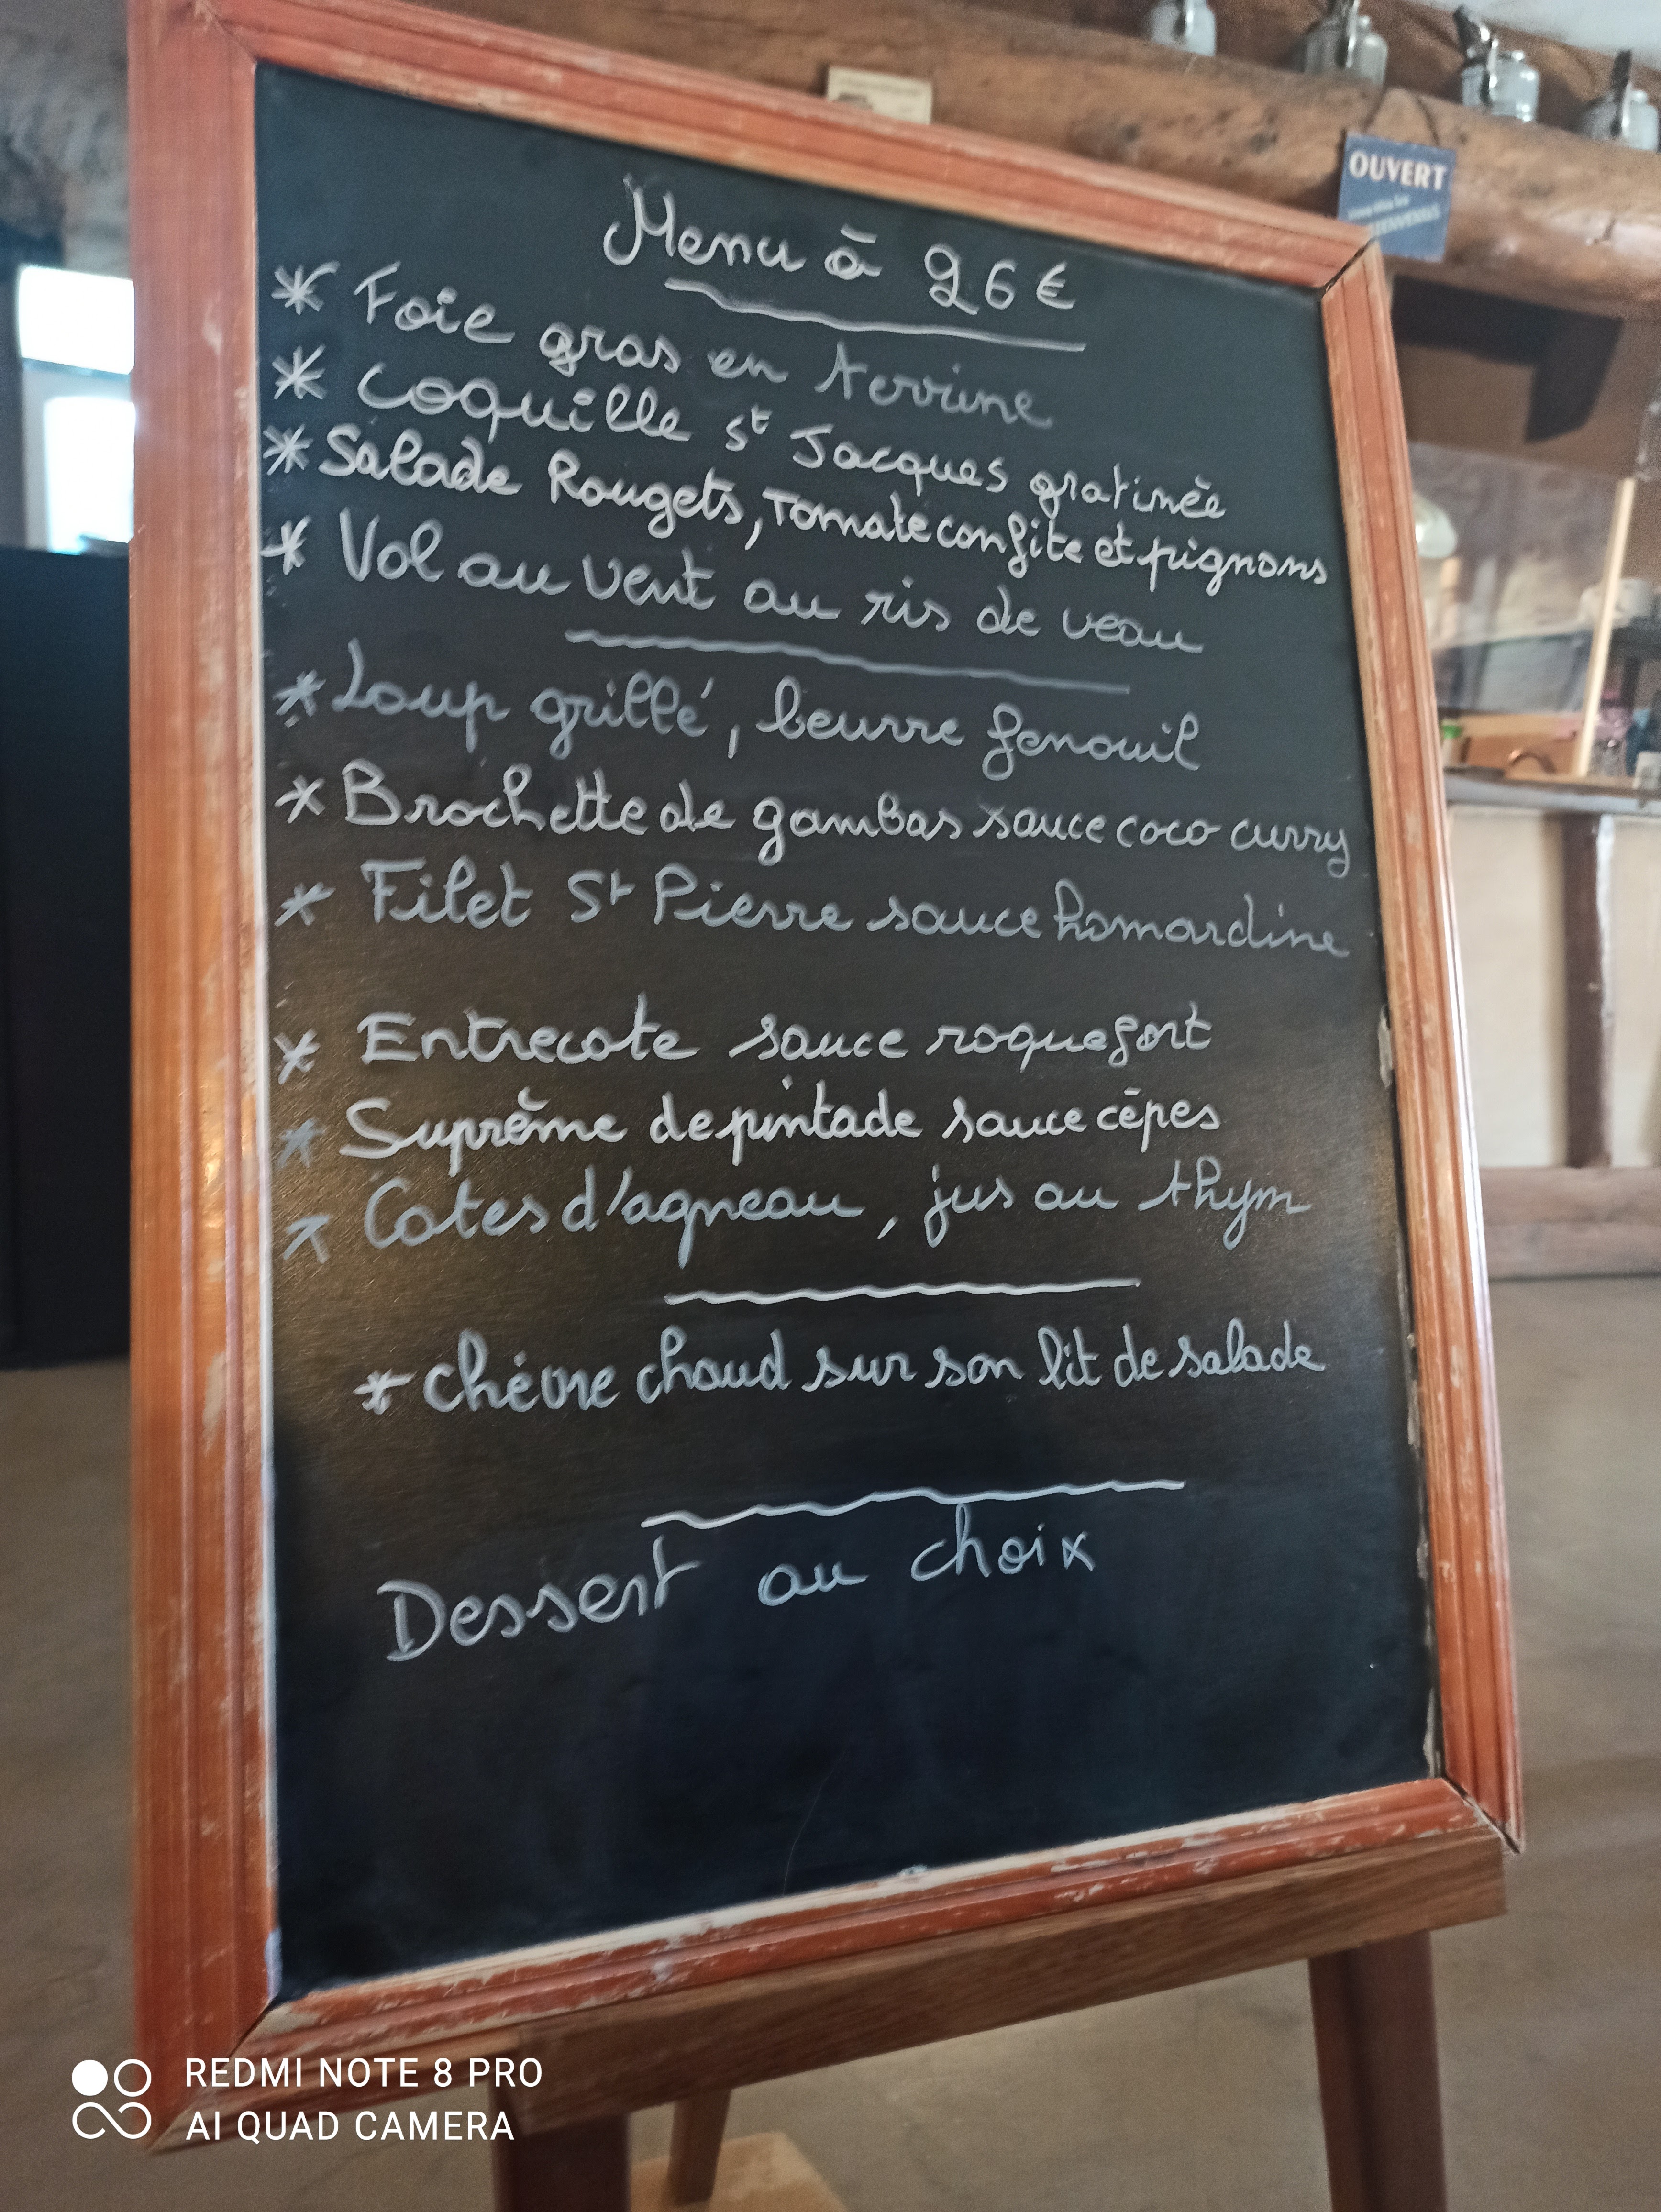 Menu à 26€
* Foie gras en terrine
* Coquille St Jacques gratinée
* Salade Rougets, Tomate confite et pignons
* Vol au vent au ris de veau
* Loup grillé, beurre fenouil
* Brochette de gambas sauce coco curry
* Filet St Pierre sauce homardine
* Entrecote sauce roquefort
* Suprême de pintade sauce cèpes
* Cotes d'agneau, jus au thym
* Chèvre chaud sur son lit de salade
Dessert au choix
OUVERT
REDMI NOTE 8 PRO
AI QUAD CAMERA